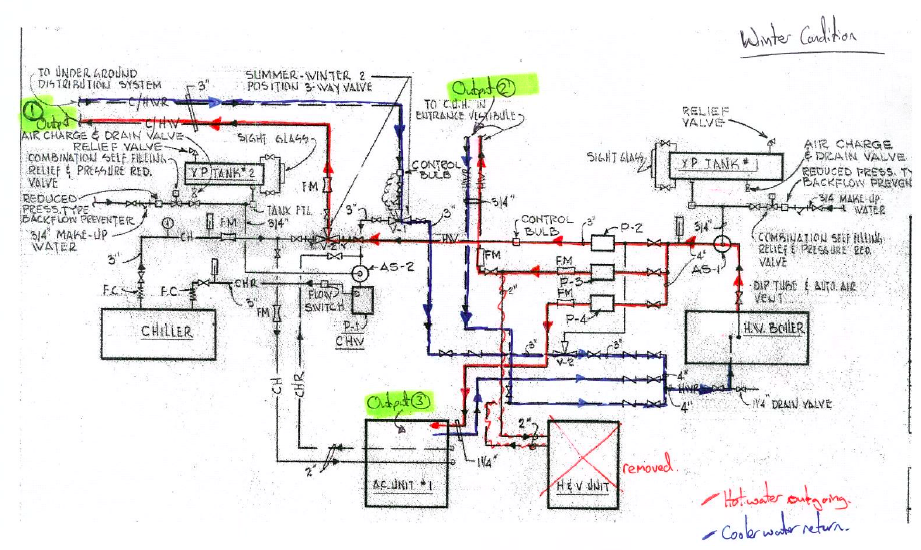 Winter Condition
TO UNDERGROUND
DISTRIBUTION SYSTEM
3"
SUMMER-WINTER 2
POSITION 3-WAY VALVE
Output ②
TO C.U.H. IN
ENTRANCE VESTIBULE
RELIEF
VALVE
①
Output
C/HWR
C/HW
AIR CHARGE & DRAIN VALVE
RELIEF VALVE
COMBINATION SELF FILLING
RELIEF & PRESSURE RED.
VALVE
SIGHT GLASS
XP TANK #2
CONTROL
BULB
HWR
HW
SIGHT GLASS
XP TANK #1
AIR CHARGE
& DRAIN VALVE
REDUCED PRESS. TY
BACKFLOW PREVEN
3/4 MAKE-UP
WATER
REDUCED
PRESS. TYPE
BACKFLOW PREVENTER
3/4" MAKE-UP
WATER
TANK FTG.
3/4"
FM
3"
3"
3/4"
3/4"
CH
FM
V-1
HW
CONTROL
BULB
3"
P-2
4"
AS-1
COMBINATION SELF FILLING
RELIEF & PRESSURE RED.
VALVE
3"
F.C.
F.C.
CHR
3"
AS-2
FLOW
SWITCH
P-1
CHW
FM
FM
FM
FM
2"
P-3
P-4
DIP TUBE & AUTO. AIR
VENT
CHILLER
H.W. BOILER
3"
V-2
3"
CH
CHR
4"
4"
HWR
1 1/4" DRAIN VALVE
Output ③
2"
AC UNIT #1
1 1/4"
2"
H & V UNIT
removed.
Hot water outgoing.
Cooler water return.